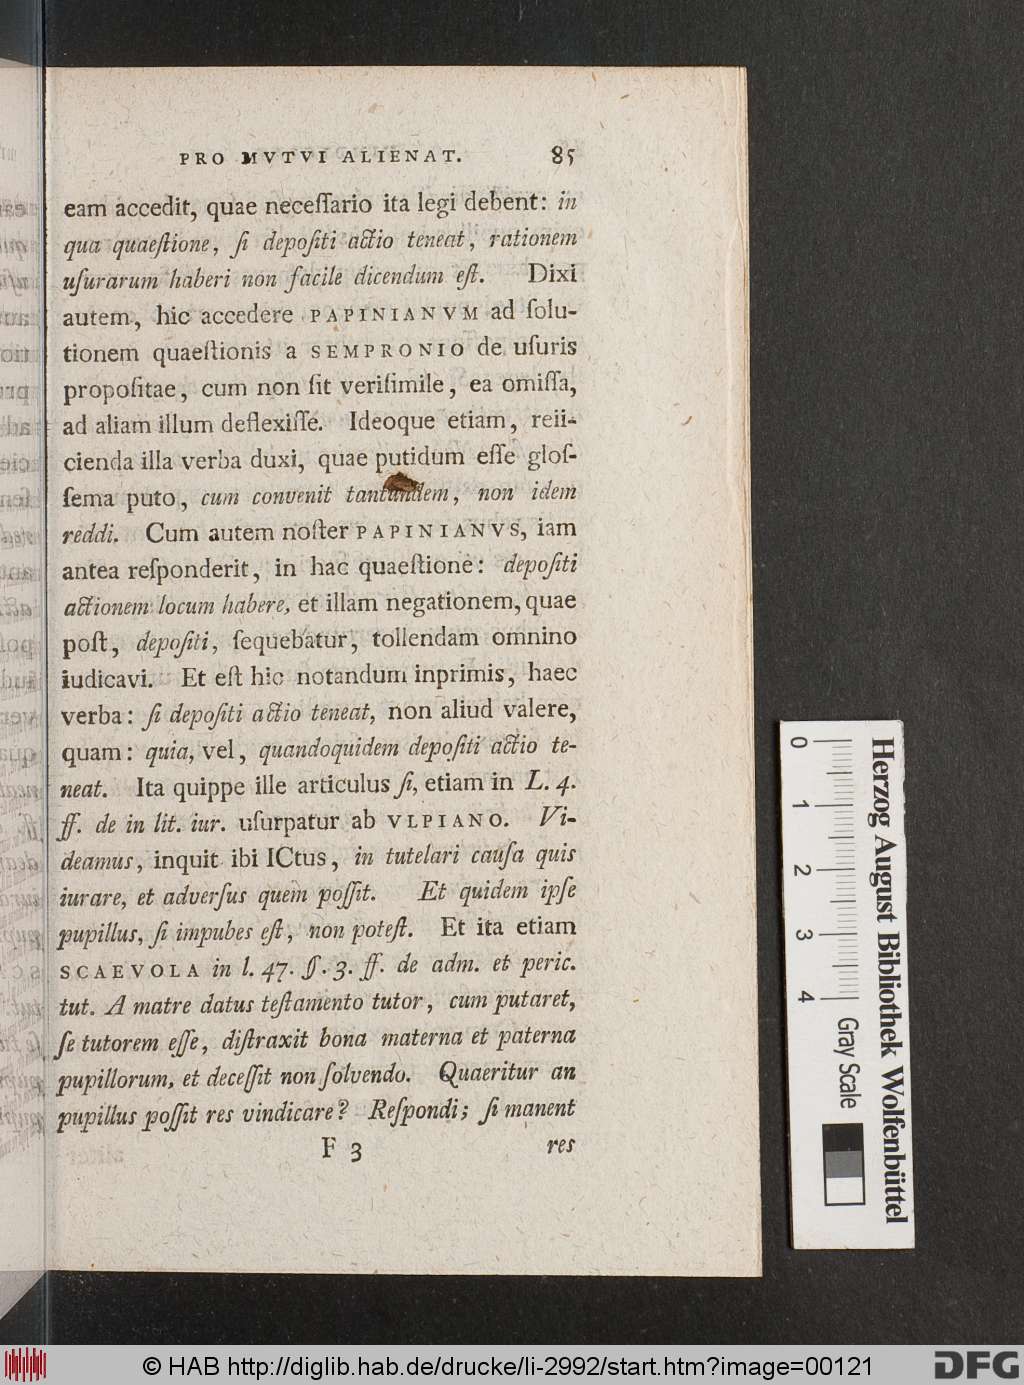 PRO MVTVI ALIENAT. 85
eam accedit, quae neceſſario ita legi debent: in
qua quaeſtione, ſi depoſiti actio teneat, rationem
uſurarum haberi non facile dicendum eſt. Dixi
autem, hic accedere PAPINIANVM ad ſolu-
tionem quaeſtionis a SEMPRONIO de uſuris
propoſitae, cum non ſit veriſimile, ea omiſſa,
ad aliam illum deflexiſſe. Ideoque etiam, reii-
cienda illa verba duxi, quae putidum eſſe gloſ-
ſema puto, cum convenit tantundem, non idem
reddi. Cum autem noſter PAPINIANVS, iam
antea reſponderit, in hac quaeſtione: depoſiti
actionem locum habere, et illam negationem, quae
poſt, depoſiti, ſequebatur, tollendam omnino
iudicavi. Et eſt hic notandum inprimis, haec
verba: ſi depoſiti actio teneat, non aliud valere,
quam: quia, vel, quandoquidem depoſiti actio te-
neat. Ita quippe ille articulus ſi, etiam in L. 4.
ff. de in lit. iur. uſurpatur ab VLPIANO. Vi-
deamus, inquit ibi ICtus, in tutelari cauſa quis
iurare, et adverſus quem poſſit. Et quidem ipſe
pupillus, ſi impubes eſt, non poteſt. Et ita etiam
SCAEVOLA in l. 47. ſſ. 3. ff. de adm. et peric.
tut. A matre datus teſtamento tutor, cum putaret,
ſe tutorem eſſe, diſtraxit bona materna et paterna
pupillorum, et deceſſit non ſolvendo. Quaeritur an
pupillus poſſit res vindicare? Reſpondi; ſi manent
F 3 res
0 1 2 3 4
Gray Scale
Herzog August Bibliothek Wolfenbüttel
© HAB http://diglib.hab.de/drucke/li-2992/start.htm?image=00121
DFG